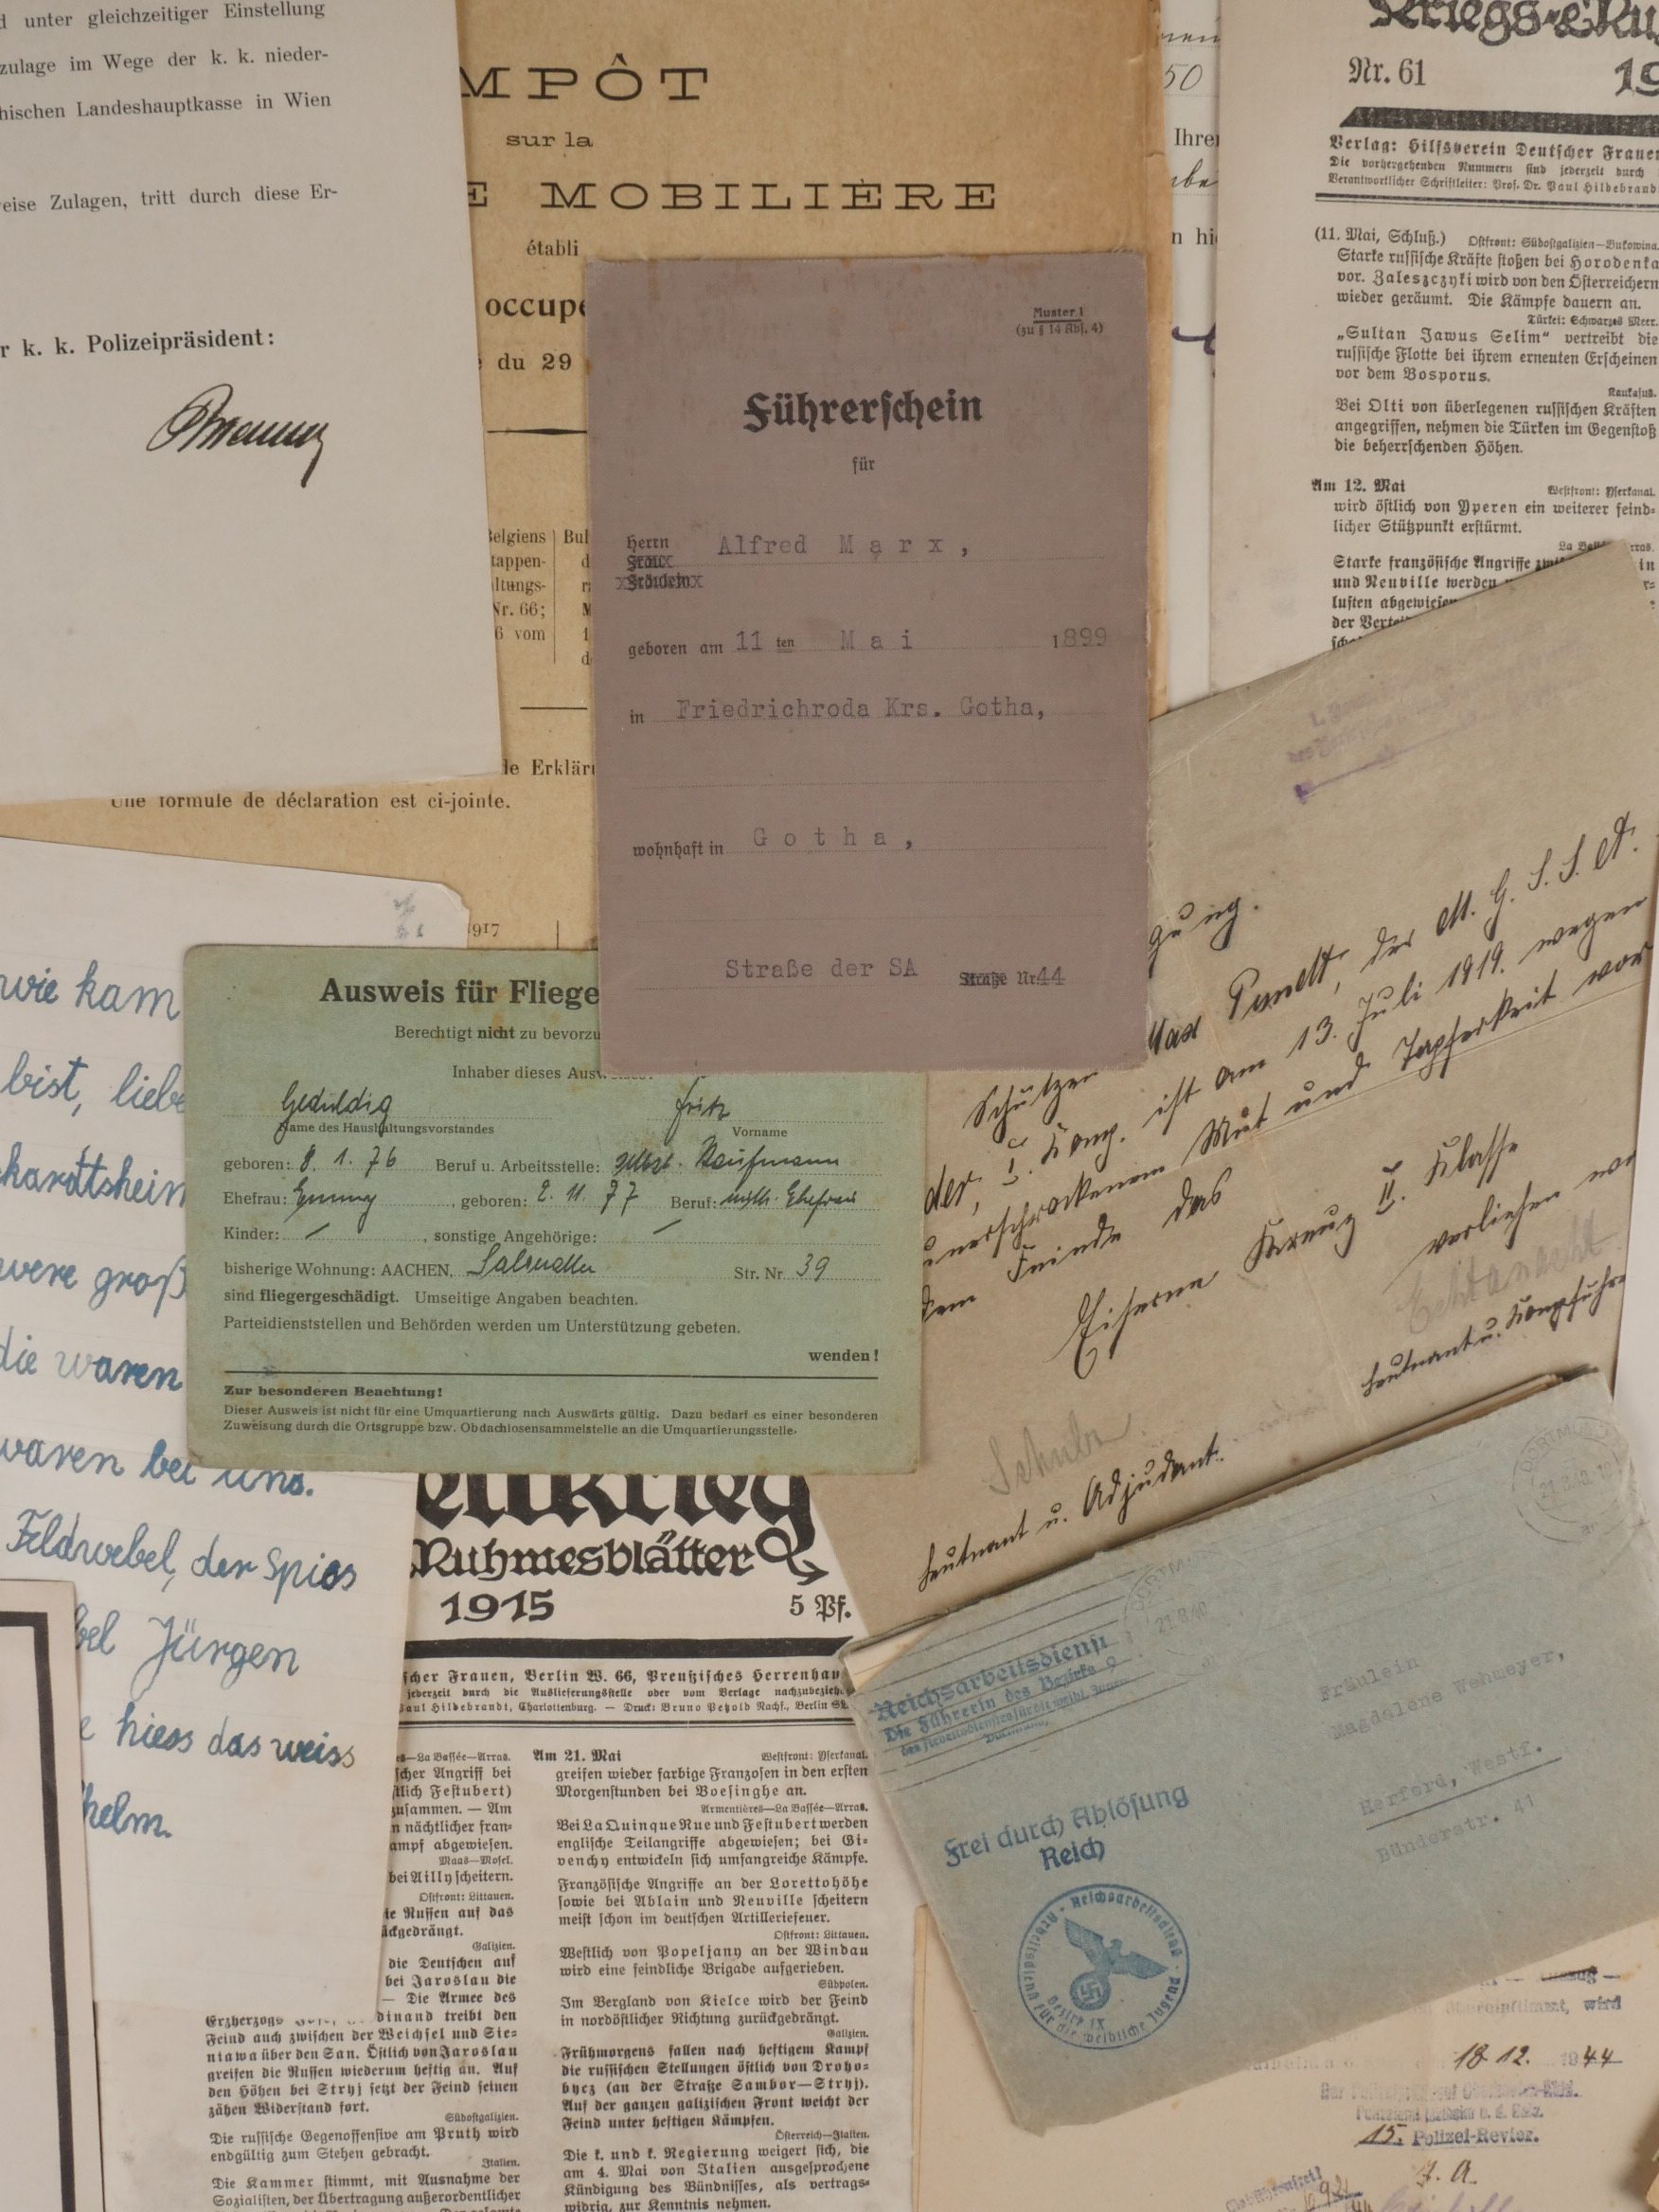 d unter gleichzeitiger Einstellung
zulage im Wege der k. k. nieder-
hischen Landeshauptkasse in Wien
eise Zulagen, tritt durch diese Er-
r k. k. Polizeipräsident:
MPÔT
sur la
E MOBILIÈRE
établi
occupe
du 29
elgiens
tappen-
ltungs-
Nr. 66;
6 vom
Bul
le Erklär
Une formule de déclaration est ci-jointe.
1917
50
Ihre
n hi
Kriegs-
Nr. 61
19
Verlag: Hilfsverein Deutscher Frauen
Die vorhergehenden Nummern sind jederzeit durch
Verantwortlicher Schriftleiter: Prof. Dr. Paul Hildebrand
(11. Mai, Schluß.) Ostfront: Südostgalizien—Bukowina.
Starke russische Kräfte stoßen bei Horodenka
vor. Zaleszczyki wird von den Österreichern
wieder geräumt. Die Kämpfe dauern an.
Türkei: Schwarzes Meer.
„Sultan Jawus Selim“ vertreibt die
russische Flotte bei ihrem erneuten Erscheinen
vor dem Bosporus.
Kaukasus.
Bei Olti von überlegenen russischen Kräften
angegriffen, nehmen die Türken im Gegenstoß
die beherrschenden Höhen.
Am 12. Mai Westfront: Yserkanal.
wird östlich von Ypern ein weiterer feind-
licher Stützpunkt erstürmt.
Starke französische Angriffe
und Neuville werden
lusten abgewiesen
Muster 1
(zu § 14 Abs. 4)
Führerschein
für
Herrn Alfred Marx,
Frau
Fräulein
geboren am 11 ten Mai 1899
in Friedrichroda Krs. Gotha,
wohnhaft in Gotha,
Straße der SA Straße Nr. 44
wie kam
bist, liebe
khardtsheim
were groß
die waren
waren bei uns.
Feldwebel, der Spiess
bel Jürgen
hiess das weiss
helm.
Ausweis für Fliege
Berechtigt nicht zu bevorzu
Inhaber dieses Ausweises:
Geduldig Fritz
Name des Haushaltungsvorstandes Vorname
geboren: 8. 1. 76 Beruf u. Arbeitsstelle: selbst. Kaufmann
Ehefrau: Emmy, geboren: 2. 11. 77 Beruf: Ehefrau
Kinder: / , sonstige Angehörige: /
bisherige Wohnung: AACHEN, Str. Nr. 39
sind fliegergeschädigt. Umseitige Angaben beachten.
Parteidienststellen und Behörden werden um Unterstützung gebeten.
wenden!
Zur besonderen Beachtung!
Dieser Ausweis ist nicht für eine Umquartierung nach Auswärts gültig. Dazu bedarf es einer besonderen
Zuweisung durch die Ortsgruppe bzw. Obdachlosensammelstelle an die Umquartierungsstelle.
gung.
Schützen Max Pundt, der M. G. S. S. A.
der I. Komp. ist am 13. Juli 1919. wegen
unerschrockenem Mut und Tapferkeit vor
dem Feinde das
Eiserne Kreuz II. Klasse
verliehen wo
Leutnant u. Kompführer
Leutnant u. Adjudant.
enkrieg
Ruhmesblätter
1915 5 Pf.
scher Frauen, Berlin W. 66, Preußisches Herrenhaus
jederzeit durch die Auslieferungsstelle oder vom Verlage nachzubezieh
Paul Hildebrandt, Charlottenburg. — Druck: Bruno Petzold Nachf., Berlin
es—La Bassée—Arras.
scher Angriff bei
tlich Festubert)
zusammen. — Am
n nächtlicher fran-
ampf abgewiesen.
Maas—Mosel.
bei Ailly scheitern.
Ostfront: Littauen.
ie Russen auf das
ückgedrängt.
Galizien.
die Deutschen auf
bei Jaroslau die
— Die Armee des
Erzherzogs dinand treibt den
Feind auch zwischen der Weichsel und Sie-
niawa über den San. Östlich von Jaroslau
greifen die Russen wiederum heftig an. Auf
den Höhen bei Stryj setzt der Feind seinen
zähen Widerstand fort.
Südostgalizien.
Die russische Gegenoffensive am Pruth wird
endgültig zum Stehen gebracht.
Italien.
Die Kammer stimmt, mit Ausnahme der
Sozialisten, der Übertragung außerordentlicher
Am 21. Mai Westfront: Yserkanal.
greifen wieder farbige Franzosen in den ersten
Morgenstunden bei Boesinghe an.
Armentières—La Bassée—Arras.
Bei La Quinque Rue und Festubert werden
englische Teilangriffe abgewiesen; bei Gi-
venchy entwickeln sich umfangreiche Kämpfe.
Französische Angriffe an der Lorettohöhe
sowie bei Ablain und Neuville scheitern
meist schon im deutschen Artilleriefeuer.
Ostfront: Littauen.
Westlich von Popeljany an der Windau
wird eine feindliche Brigade aufgerieben.
Südpolen.
Im Bergland von Kielce wird der Feind
in nordöstlicher Richtung zurückgedrängt.
Galizien.
Frühmorgens fallen nach heftigem Kampf
die russischen Stellungen östlich von Droho-
bycz (an der Straße Sambor—Stryj).
Auf der ganzen galizischen Front weicht der
Feind unter heftigen Kämpfen.
Österreich—Italien.
Die k. und k. Regierung weigert sich, die
am 4. Mai von Italien ausgesprochene
Kündigung des Bündnisses, als vertrags-
widrig, zur Kenntnis nehmen.
DORTMUND
21.8.40
Reichsarbeitsdienst
Die Führerin des Bezirks 9
des Reichsarbeitsdienstes für die weibl. Jugend
Dortmund,
Fräulein
Magdalene Wehmeyer,
Herford, Westf.
Bünderstr. 41
Frei durch Ablösung
Reich
Reichsarbeitsdienst
Bezirk IX
für die weibliche Jugend
übereinstimmt, wird
18. 12. 1944
15. Polizei-Revier.
J. A.